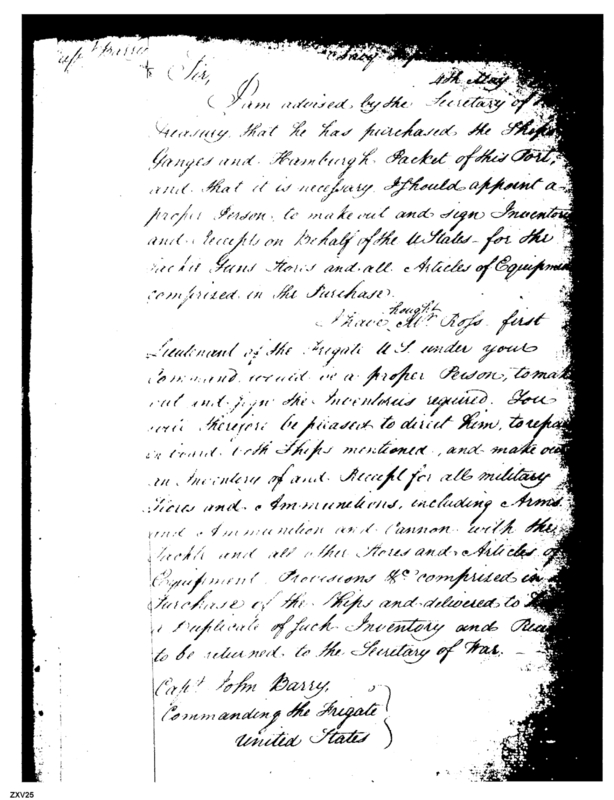 Capt Barry
Sir,
4th May
I am advised by the Secretary of
Treasury that he has purchased the Ships
Ganges and Hamburgh Packet of this Port,
and that it is necessary I should appoint a
proper Person to make out and sign
and Receipts on Behalf of the U States for the
Guns Stores and all Articles of
comprised in the Purchase.
I have thought Mr. Ross first
Lieutenant of the Frigate U.S. under your
Command would be a proper Person, to
out and sign the Inventories required. You
will therefore be pleased to direct him, to
on board both Ships mentioned, and make
an Inventory of and Receipt for all military
Stores and Ammunitions, including Arms
and Ammunition and Cannon with the
Tackle and all other Stores and Articles of
Equipment Provisions &c comprised in
Purchase of the Ships and delivered to
a Duplicate of such Inventory and
to be returned to the Secretary of War.
Capt John Barry,
Commanding the Frigate
United States
ZXV25